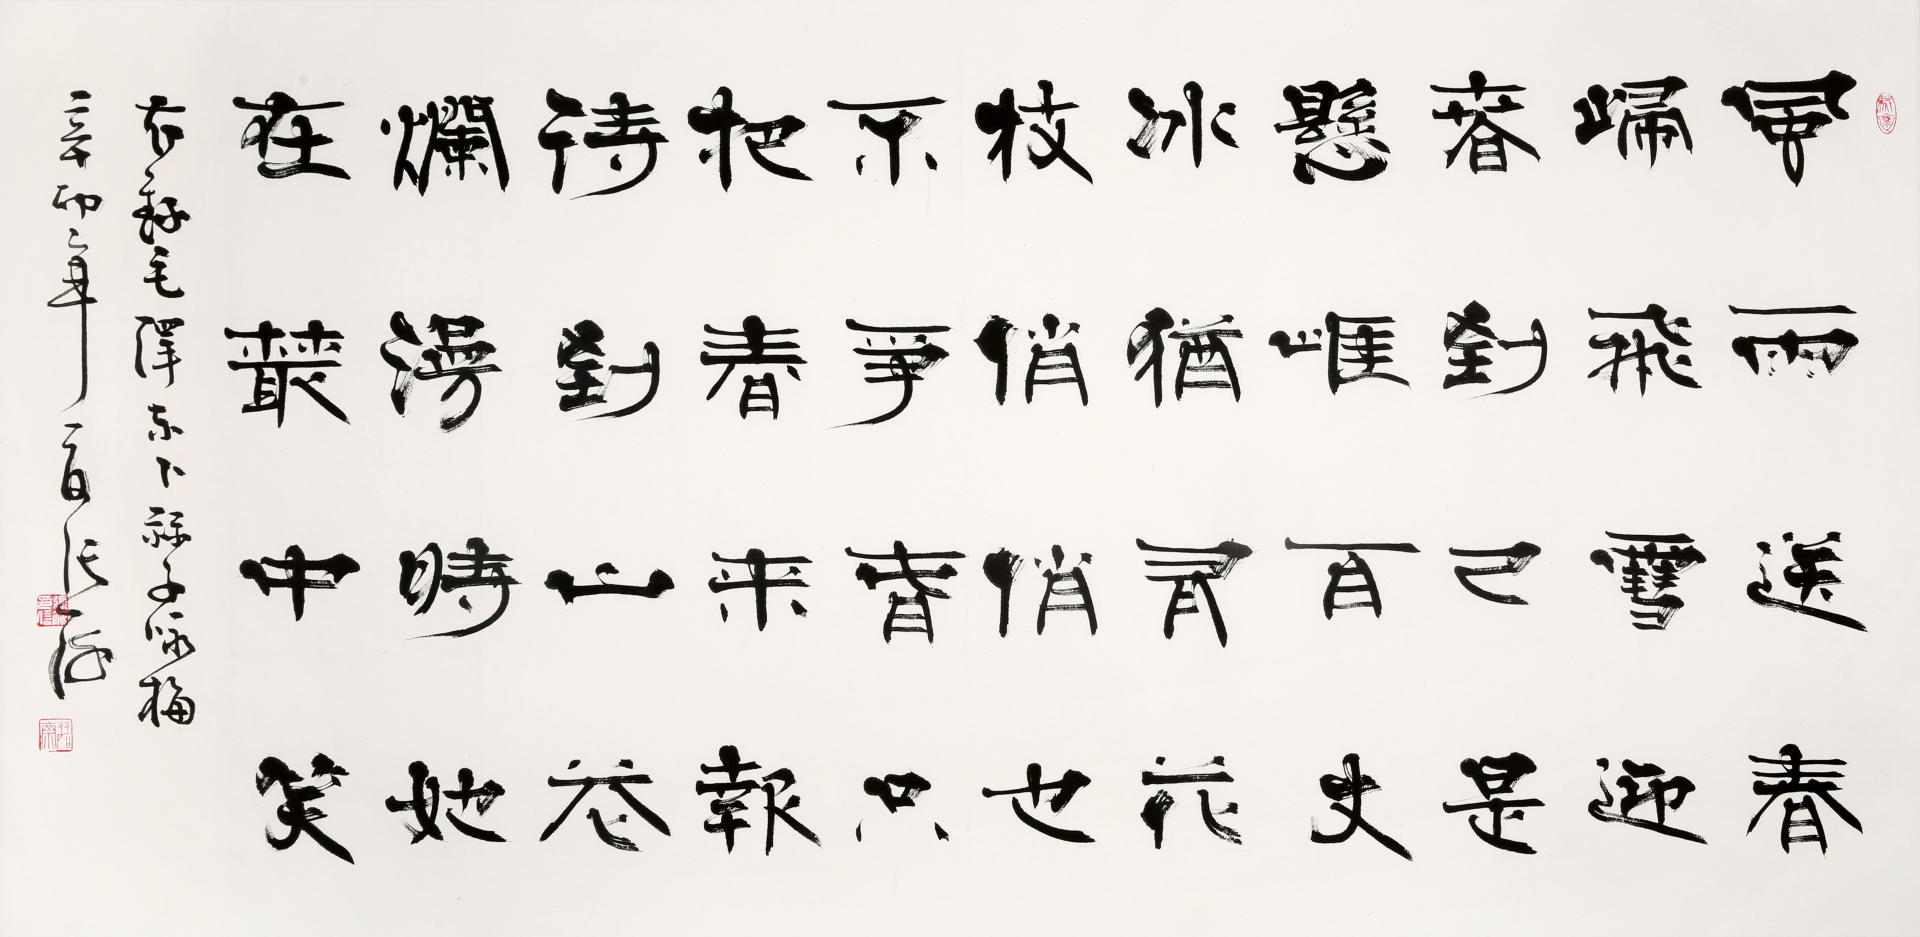 風雨送春
歸飛雪迎
春到已是
懸崖百丈
冰猶有花
枝俏俏也
不爭春只
把春来報
待到山花
爛漫時她
在叢中笑
右録毛澤東卜祘子詠梅
辛卯之年夏张海